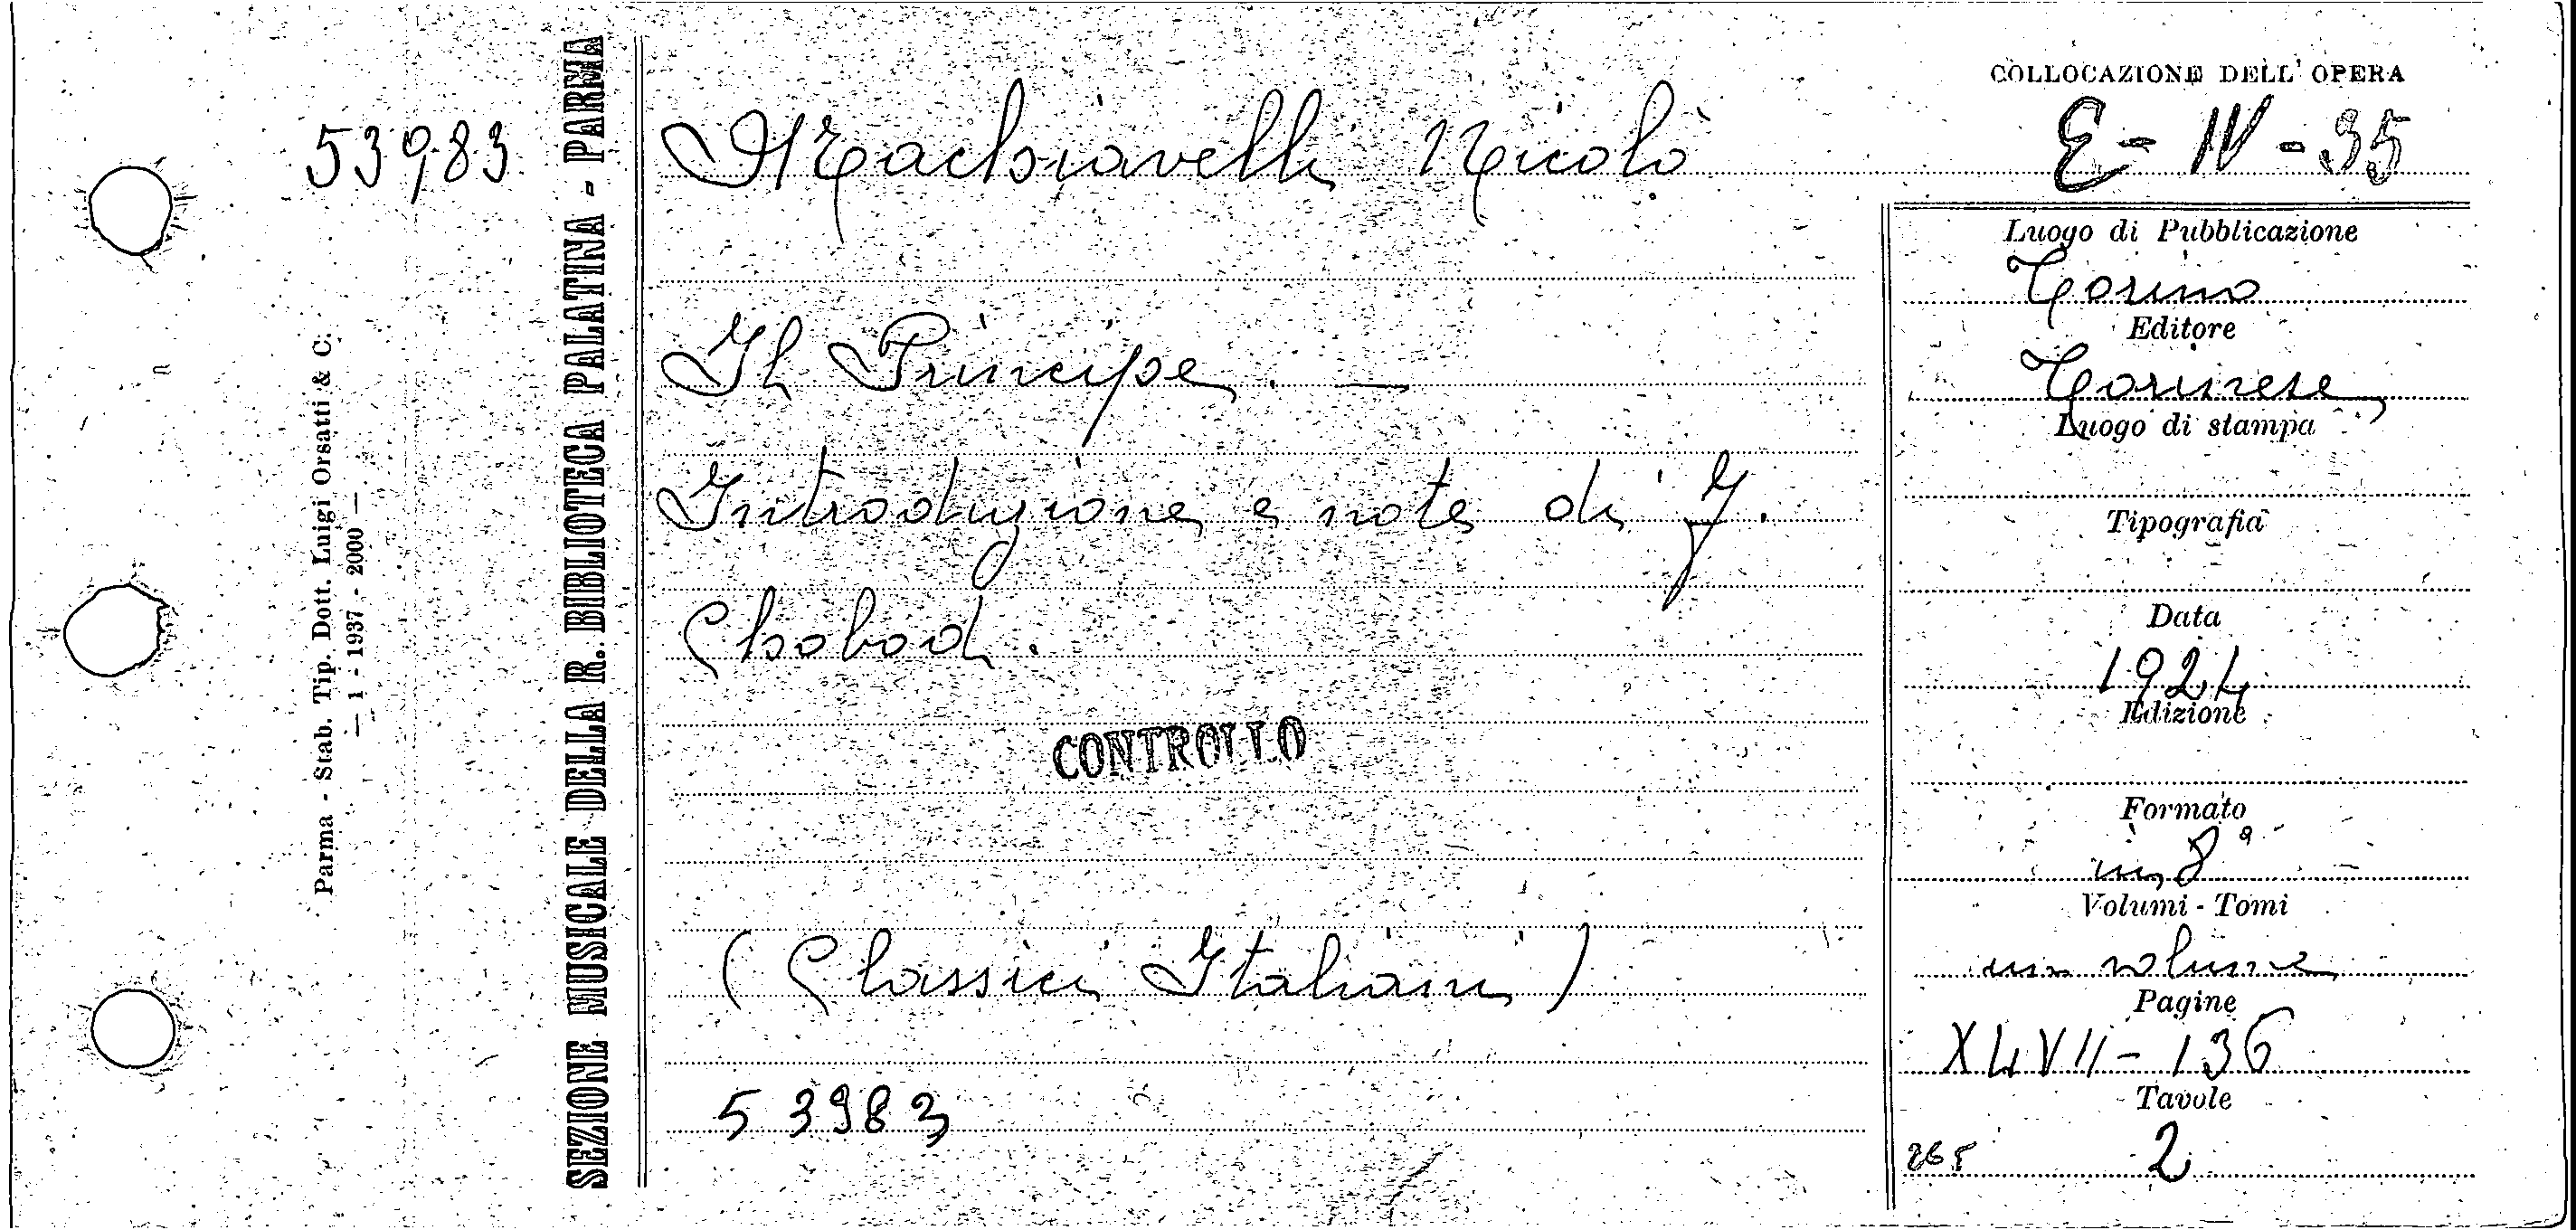 COLLOCAZIONE DELL' OPERA
53983
Machiavelli Nicolò
E - IV - 35
Luogo di Pubblicazione
Torino
Editore
Il Principe. —
Torinese
Luogo di stampa
Introduzione e note di F.
Tipografia
Chabod.
Data
1924
Edizione
CONTROLLO
Formato
in 8°
Volumi - Tomi
(Classici Italiani)
un volume
Pagine
XLVII - 136
53983
Tavole
2
SEZIONE MUSICALE DELLA R. BIBLIOTECA PALATINA - PARMA
Parma - Stab. Tip. Dott. Luigi Orsatti & C.
— 1 - 1937 - 2000 —